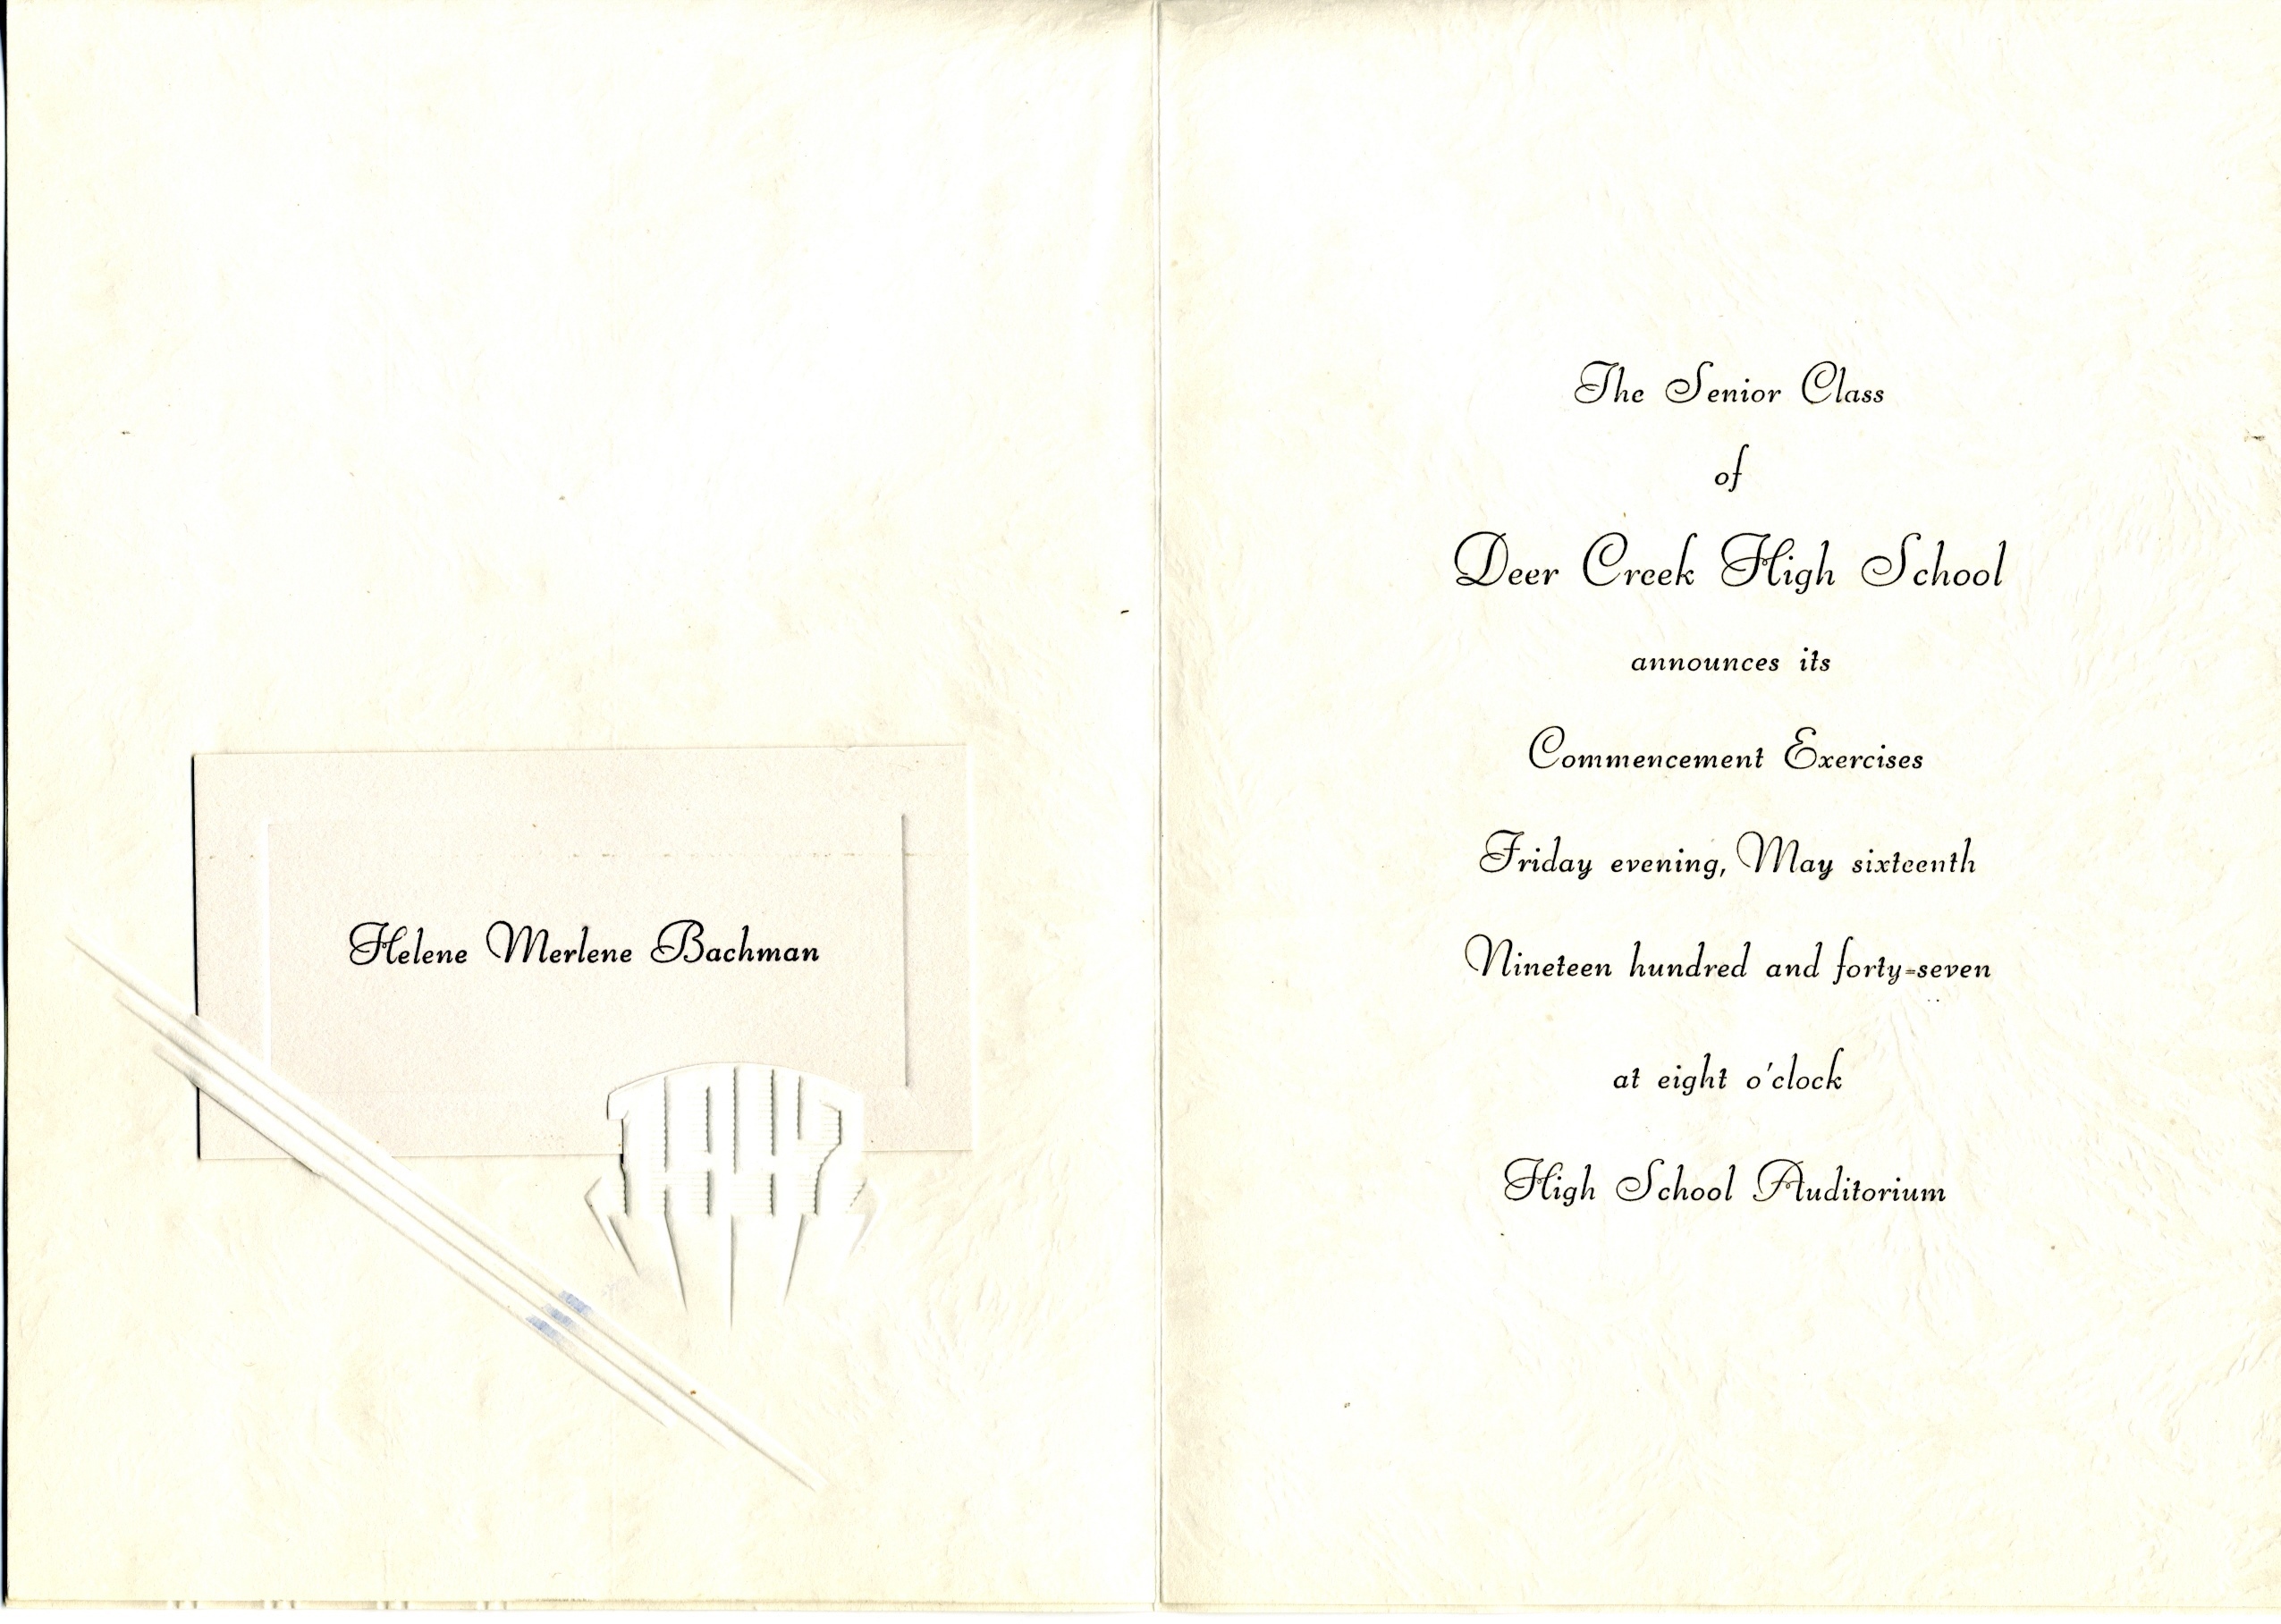 Helene Merlene Bachman
The Senior Class
of
Deer Creek High School
announces its
Commencement Exercises
Friday evening, May sixteenth
Nineteen hundred and forty-seven
at eight o'clock
High School Auditorium